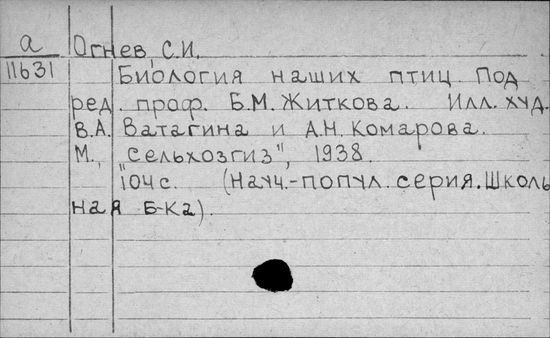 а Огнев, С.И.
11631 Биология наших птиц. Под
ред. проф. Б.М. Житкова. Илл. худ.
В.А. Ватагина и А.Н. Комарова.
М., "Сельхозгиз", 1938.
104 с. (Науч.-попул. серия. Школь
ная б-ка).